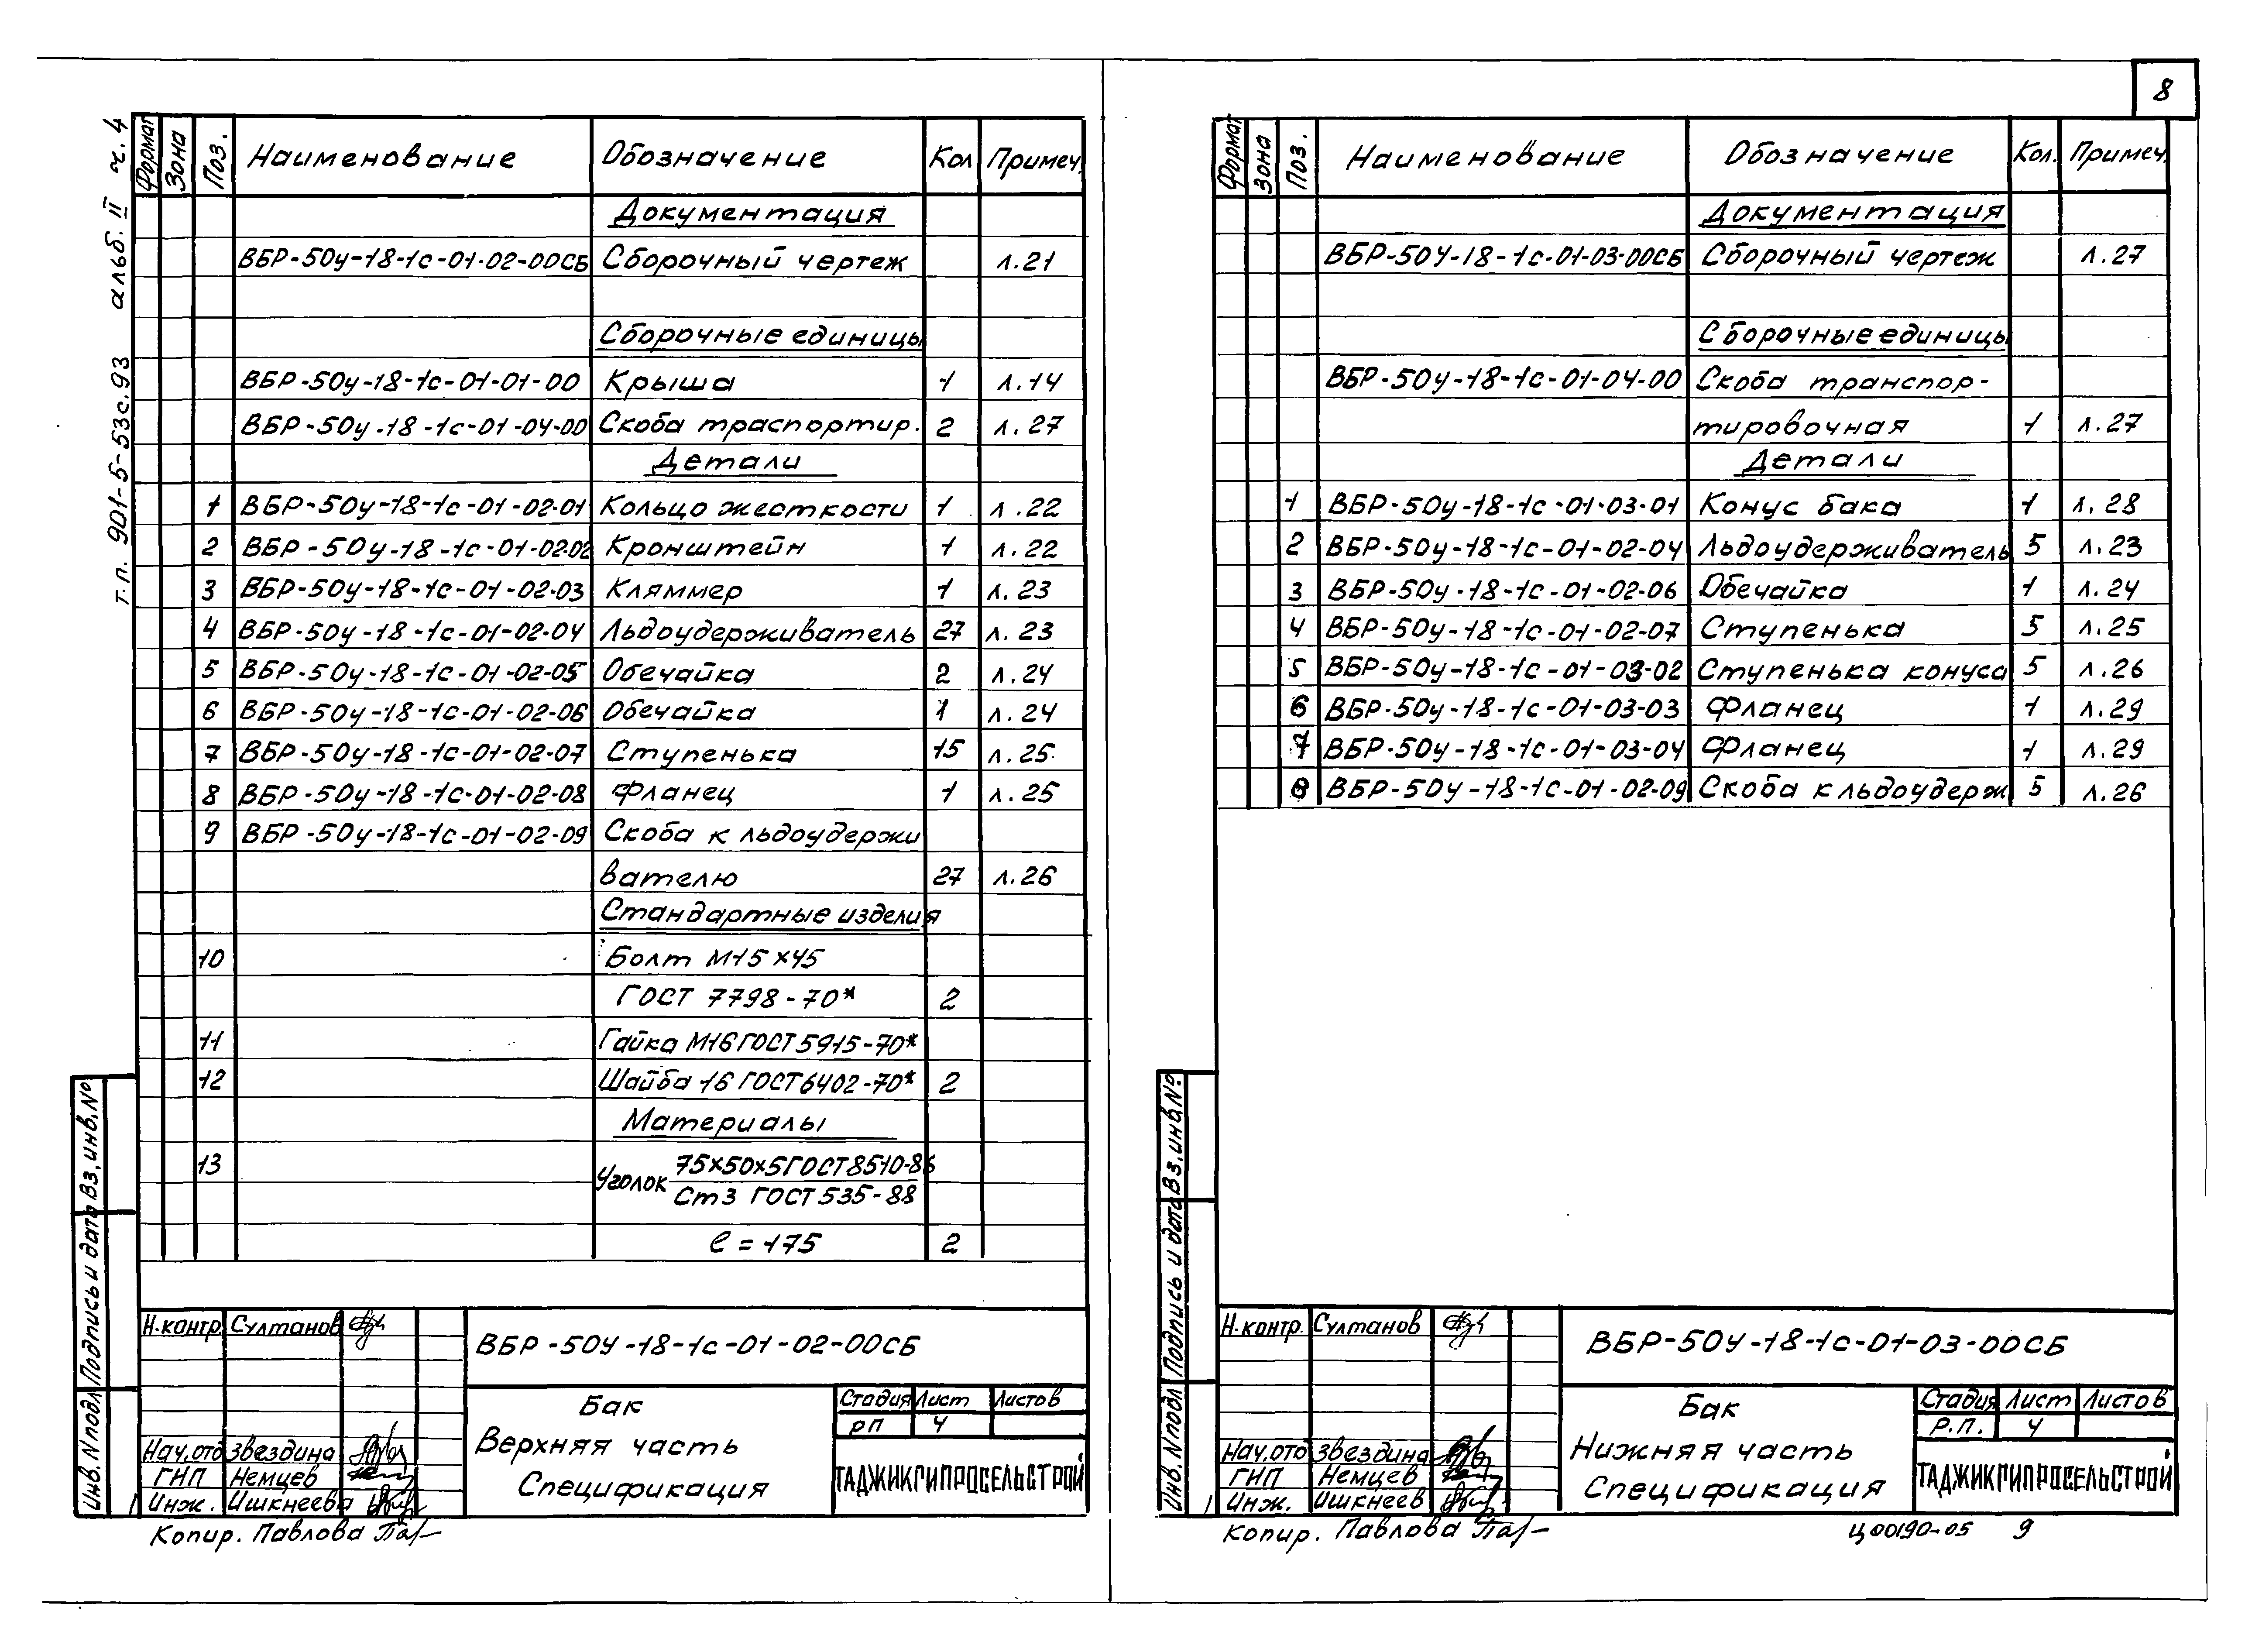 8
т.п. 901-5-53с.93 альб. II ч. 4
Формат Зона Поз. Наименование Обозначение Кол Примеч.
Документация
ВБР-50у-18-1с-01-02-00СБ Сборочный чертеж л.21
Сборочные единицы
ВБР-50у-18-1с-01-01-00 Крыша 1 л.14
ВБР-50у-18-1с-01-04-00 Скоба траспортир. 2 л.27
Детали
1 ВБР-50у-18-1с-01-02-01 Кольцо жесткости 1 л.22
2 ВБР-50у-18-1с-01-02-02 Кронштейн 1 л.22
3 ВБР-50у-18-1с-01-02-03 Кляммер 1 л.23
4 ВБР-50у-18-1с-01-02-04 Льдоудерживатель 27 л.23
5 ВБР-50у-18-1с-01-02-05 Обечайка 2 л.24
6 ВБР-50у-18-1с-01-02-06 Обечайка 1 л.24
7 ВБР-50у-18-1с-01-02-07 Ступенька 15 л.25
8 ВБР-50у-18-1с-01-02-08 Фланец 1 л.25
9 ВБР-50у-18-1с-01-02-09 Скоба к льдоудержи
вателю 27 л.26
Стандартные изделия
10 Болт М15х45
ГОСТ 7798-70* 2
11 Гайка М16 ГОСТ 5915-70*
12 Шайба 16 ГОСТ 6402-70* 2
Материалы
13 Уголок 75х50х5 ГОСТ 8510-86
Ст3 ГОСТ 535-88
ℓ=175 2
Инв. N подл Подпись и дата Вз. инв. №
Н.контр. Султанов
ВБР-50У-18-1с-01-02-00СБ
Бак
Верхняя часть
Спецификация
Стадия Лист Листов
РП 4
Нач.отд Звездина
ГНП Немцев
Инж. Ишкнеева
ТАДЖИКГИПРОСЕЛЬСТРОЙ
Копир. Павлова
Формат Зона Поз. Наименование Обозначение Кол. Примеч.
Документация
ВБР-50У-18-1с-01-03-00СБ Сборочный чертеж л.27
Сборочные единицы
ВБР-50у-18-1с-01-04-00 Скоба транспор-
тировочная 1 л.27
Детали
1 ВБР-50у-18-1с-01-03-01 Конус бака 1 л.28
2 ВБР-50у-18-1с-01-02-04 Льдоудерживатель 5 л.23
3 ВБР-50у-18-1с-01-02-06 Обечайка 1 л.24
4 ВБР-50у-18-1с-01-02-07 Ступенька 5 л.25
5 ВБР-50у-18-1с-01-03-02 Ступенька конуса 5 л.26
6 ВБР-50у-18-1с-01-03-03 Фланец 1 л.29
7 ВБР-50у-18-1с-01-03-04 Фланец 1 л.29
8 ВБР-50у-18-1с-01-02-09 Скоба к льдоудерж 5 л.26
Инв. N подл Подпись и дата Вз. инв №
Н.контр. Султанов
ВБР-50У-18-1с-01-03-00СБ
Бак
Нижняя часть
Спецификация
Стадия Лист Листов
Р.П. 4
Нач.отд Звездина
ГНП Немцев
Инж. Ишкнеев
ТАДЖИКГИПРОСЕЛЬСТРОЙ
Копир. Павлова
Ц00190-05 9